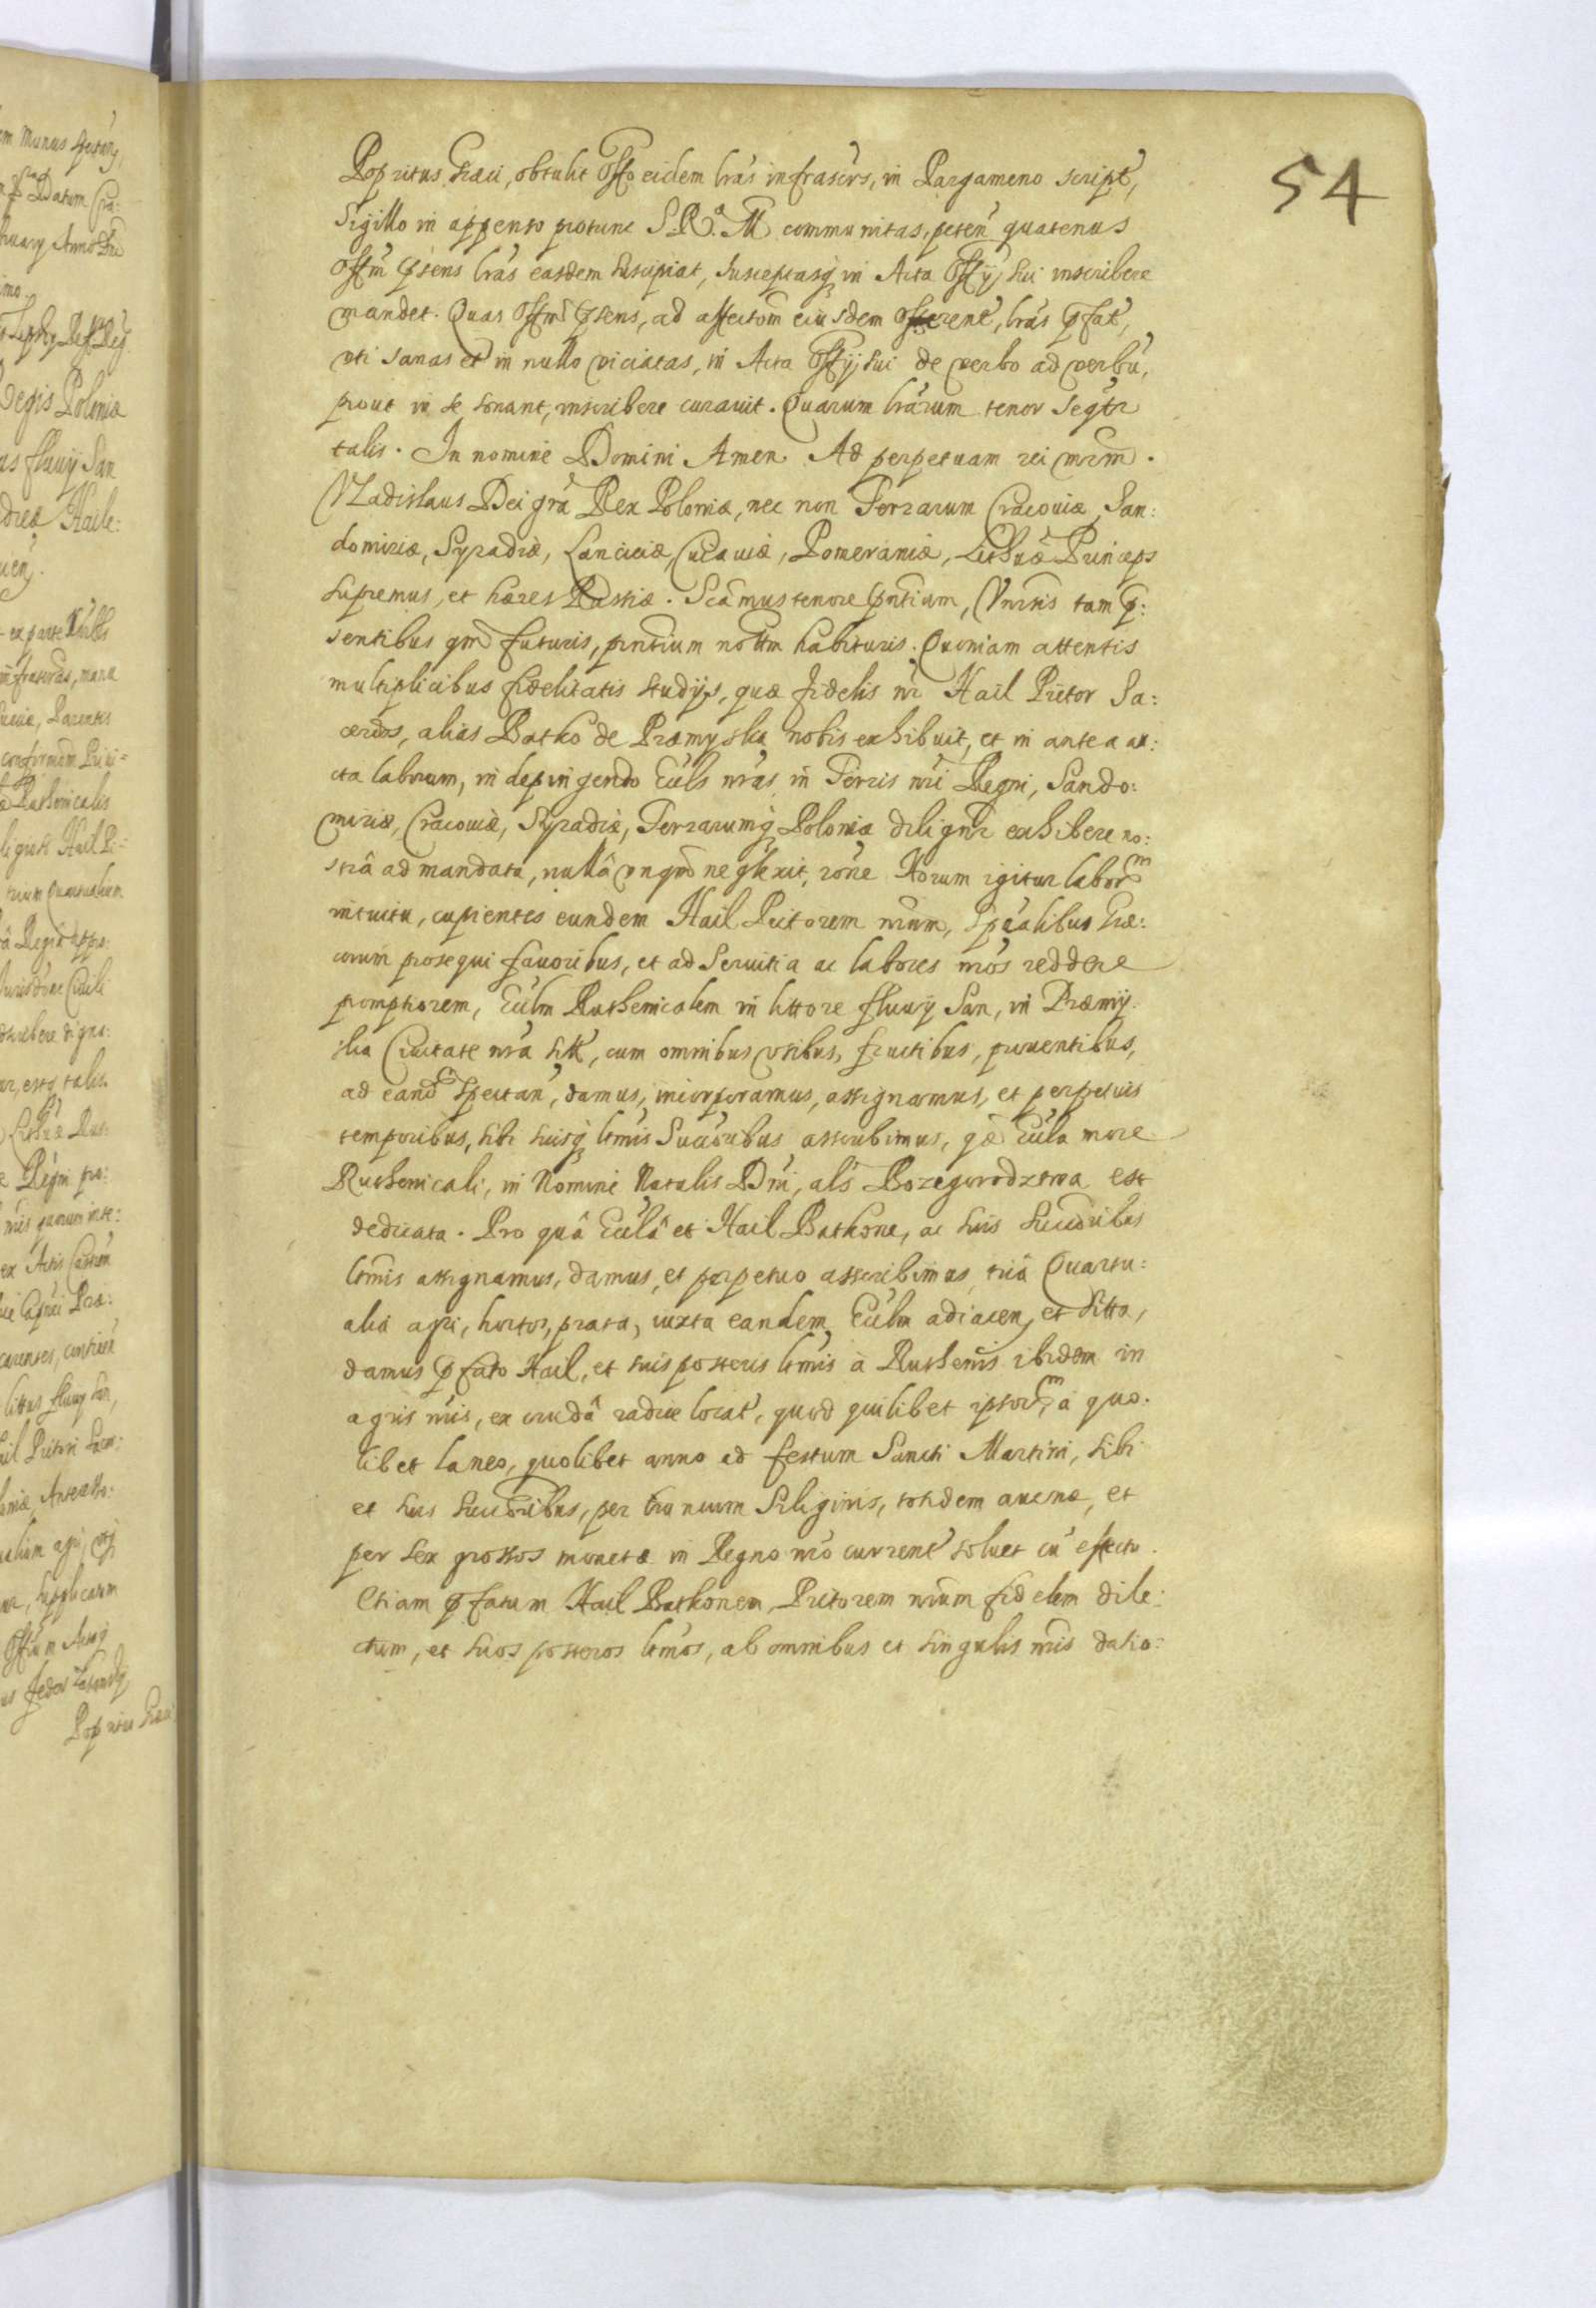 54
Popritus Græci, obtulit Offo eidem lras infrascrs, in Pargameno script,
Sigillo in appenso protunc S. R. M communitas, peten quatenus
Offm psens lras easdem suscipiat, susceptasq in Acta Offij sui inscribere
mandet. Quas Offm psens, ad affectom eiusdem offerent, lras pfat,
vti sanas et in nullo viciatas, in Acta Offij sui de verbo ad verbu,
prout in se sonant, inscribere curauit. Quarum lrarum tenor seqtr
talis. In nomine Domini Amen. Ad perpetuam rei mrm.
Vladislaus Dei gra Rex Poloniæ, nec non Terrarum Cracouiæ, San:
domiriæ, Syradiæ, Lanciciæ, Cuiauiæ, Pomeraniæ, Lithuæ Princeps
supremus, et hæres Russiæ. Sca mus tenore pntium, Vnrsis tam p:
sentibus qm futuris, pntium nottm habituris. Quoniam attentis
multiplicibus fidelitatis studijs, quæ fidelis nr Hail Pictor Sa:
cerdos, alias Batko de Præmyslia nobis exhibuit, et in antea au:
cta laborum, in depingendo Eccls nras in Terris nri Regni, Sando:
miriæ, Cracouiæ, Syradiæ, Terrarumq Polonia diligntr exhibere no:
strâ ad mandata, nullâ vnqm neglexit, rone Horum igitur laborm
intuitu, cupientes eundem Hail Pictorem nrum, spealibus Græ:
corum prosequi fauoribus, et ad seruitia ac labores nros reddere
promptiorem, Ecclm Ruthenicalem in littore fluuij San, in Præmy:
slia Ciuitate nra sit, cum omnibus vsibus, fructibus, prouentibus,
ad eandm spectan, damus, incorporamus, assignamus, et perpetuis
temporibus, sibi suisq ltmis Succoribus asscribimus, qæ Eccla more
Ruthenicali, in Nomine Natalis Dni, als Bozegorodztwa est
dedicata. Pro quâ Ecclâ et Hail Bathone, ac suis succoribus
ltmis assignamus, damus, et perpetuo asscribimus tria Quartu:
alia agri, hortos, prata, iuxta eandem Ecclm adiacen, et sitta,
damus pfato Hail, et suis posteris ltmis à Ruthenis ibidem in
agris nris, ex crudâ radice locat, quod quilibet ipsorm, à quo:
libet laneo, quolibet anno ad festum Sancti Martini, sibi
et suis succoribus, per truncum Siliginis, totidem auenæ, et
per sex grossos monetæ in Regno nro current soluet cu effectu.
Etiam pfatum Hail Bathonem, Pictorem nrum fidelem dile:
ctum, et suos posteros ltmos, ab omnibus et singulis nris datio: